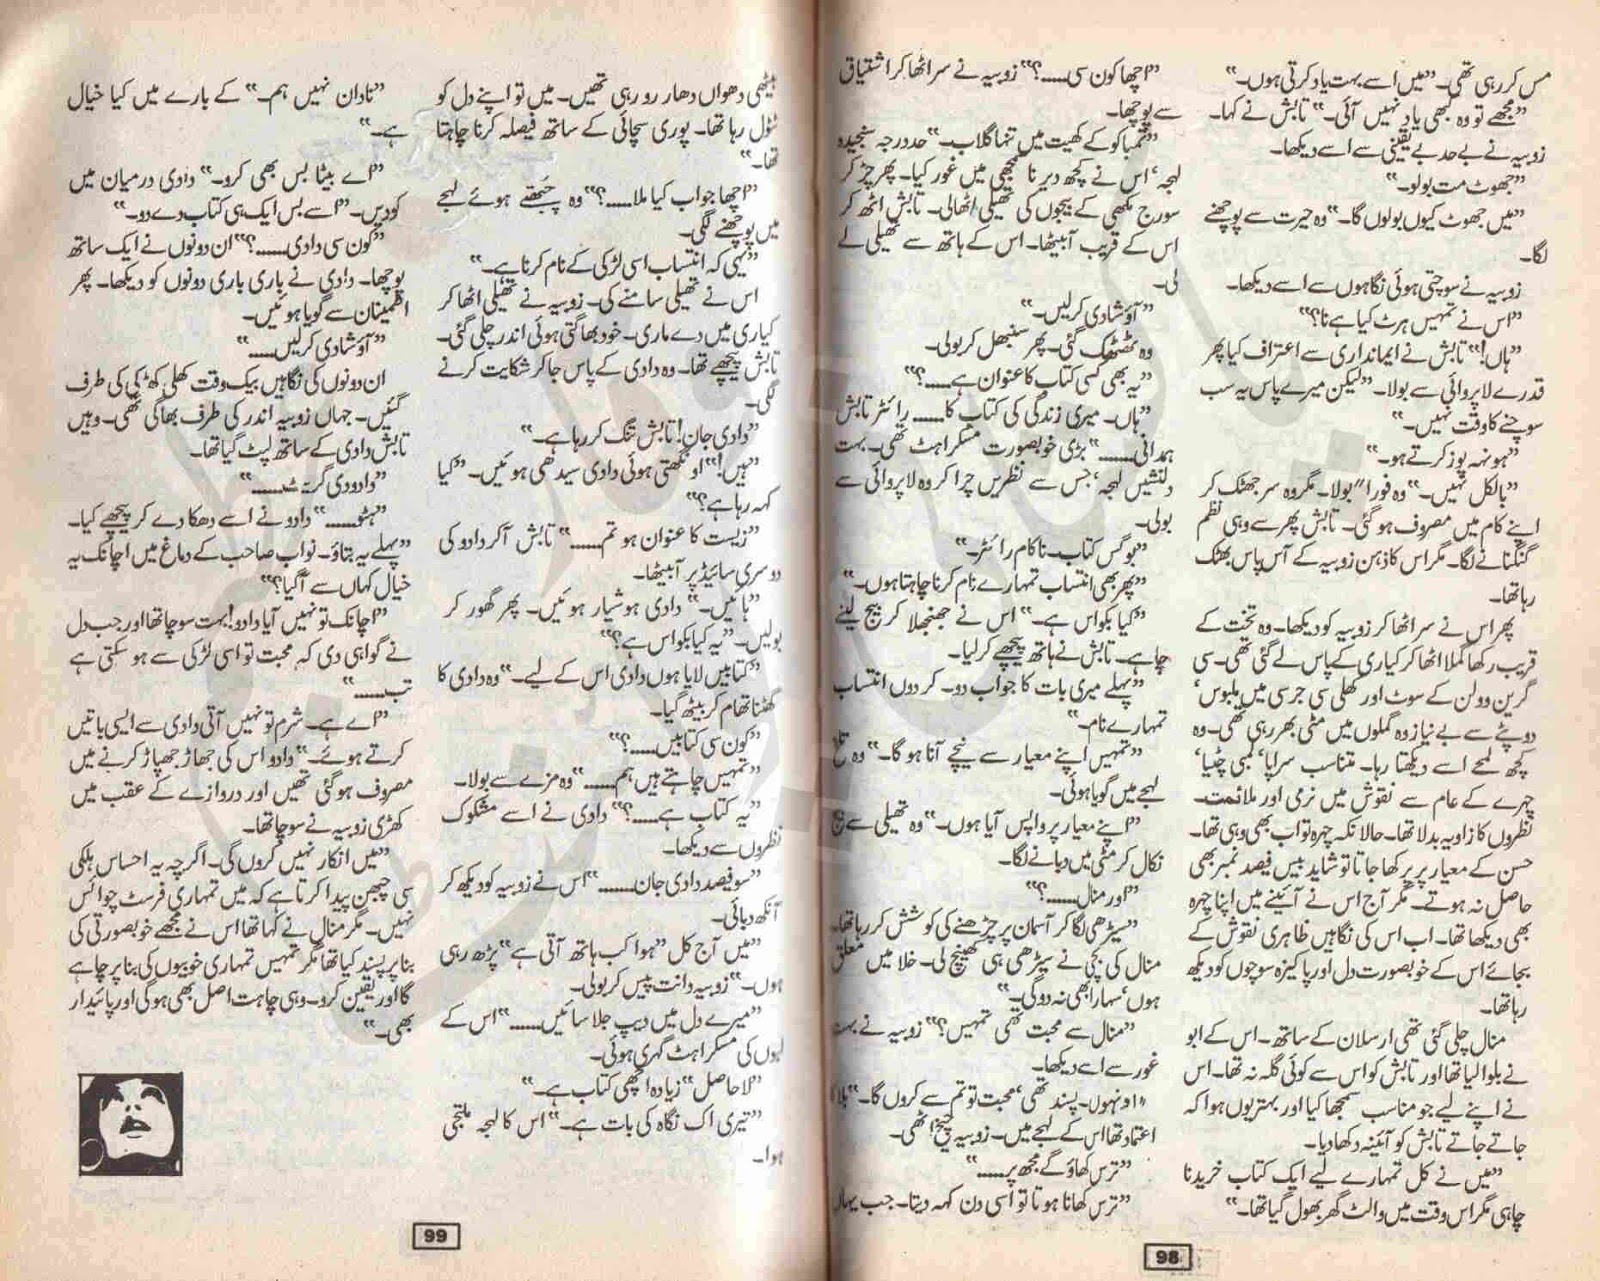 مس کر رہی تھی۔ ”میں اسے بہت یاد کرتی ہوں۔“
”مجھے تو وہ کبھی یاد نہیں آئی۔“ تابش نے کہا۔
زوبیہ نے بے حد بے یقینی سے اسے دیکھا۔
”جھوٹ مت بولو۔“
”میں جھوٹ کیوں بولوں گا۔“ وہ حیرت سے پوچھنے
لگا۔
زوبیہ نے سوچتی ہوئی نگاہوں سے اسے دیکھا۔
”اس نے تمہیں ہرٹ کیا ہے نا؟“
”ہاں!“ تابش نے ایمانداری سے اعتراف کیا پھر
قدرے لاپروائی سے بولا۔ ”لیکن میرے پاس یہ سب
سوچنے کا وقت نہیں۔“
”ہونہہ پوز کرتے ہو۔“
”بالکل نہیں۔“ وہ فوراً بولا۔ مگر وہ سر جھٹک کر
اپنے کام میں مصروف ہو گئی۔ تابش پھر سے وہی نظم
گنگنانے لگا۔ مگر اس کا ذہن زوبیہ کے آس پاس بھٹک
رہا تھا۔
پھر اس نے سر اٹھا کر زوبیہ کو دیکھا۔ وہ تخت کے
قریب رکھا گملا اٹھا کر کیاری کے پاس لے گئی تھی۔ سی
گرین وولن کے سوٹ اور کھلی سی جرسی میں ملبوس،
دوپٹے سے بے نیاز وہ گملوں میں مٹی بھر رہی تھی۔ وہ
کچھ لمحے اسے دیکھتا رہا۔ متناسب سراپا، لمبی چٹیا،
چہرے کے عام سے نقوش میں نرمی اور ملائمت۔
نظروں کا زاویہ بدلا تھا۔ حالانکہ چہرہ تو اب بھی وہی تھا۔
حسن کے معیار پر پرکھا جاتا تو شاید بیس فیصد نمبر بھی
حاصل نہ ہوتے۔ مگر آج اس نے آئینے میں اپنا چہرہ
بھی دیکھا تھا۔ اب اس کی نگاہیں ظاہری نقوش کے
بجائے اس کے خوبصورت دل اور پاکیزہ سوچوں کو دیکھ
رہا تھا۔
منال چلی گئی تھی ارسلان کے ساتھ۔ اس کے ابو
نے بلوا لیا تھا اور تابش کو اس سے کوئی گلہ نہ تھا۔ اس
نے اپنے لیے جو مناسب سمجھا کیا اور بہتر یوں ہوا کہ
جاتے جاتے تابش کو آئینہ دکھا دیا۔
”میں نے کل تمہارے لیے ایک کتاب خریدنا
چاہی مگر اس وقت میں والٹ گھر بھول گیا تھا۔“
”اچھا کون سی.....؟“ زوبیہ نے سر اٹھا کر اشتیاق
سے پوچھا۔
”تمباکو کے کھیت میں تنہا گلاب۔“ حد درجہ سنجیدہ
لہجہ، اس نے کچھ دیر نا سمجھی میں غور کیا۔ پھر چڑ کر
سورج مکھی کے بیجوں کی تھیلی اٹھالی۔ تابش اٹھ کر
اس کے قریب آ بیٹھا۔ اس کے ہاتھ سے تھیلی لے
لی۔
”آؤ شادی کر لیں۔“
وہ ٹھٹھک گئی۔ پھر سنبھل کر بولی۔
”یہ بھی کسی کتاب کا عنوان ہے.....؟“
”ہاں۔ میری زندگی کی کتاب کا..... رائٹر تابش
ہمدانی.....“ بڑی خوبصورت مسکراہٹ تھی۔ بہت
دلنشیں لہجہ، جس سے نظریں چرا کر وہ لاپروائی سے
بولی۔
”بوگس کتاب۔ ناکام رائٹر۔“
”پھر بھی انتساب تمہارے نام کرنا چاہتا ہوں۔“
”کیا بکواس ہے۔“ اس نے جھنجھلا کر بیج لینے
چاہے۔ تابش نے ہاتھ پیچھے کر لیا۔
”پہلے میری بات کا جواب دو۔ کر دوں انتساب
تمہارے نام۔“
”تمہیں اپنے معیار سے نیچے آنا ہو گا۔“ وہ تلخ
لہجے میں گویا ہوئی۔
”اپنے معیار پر واپس آیا ہوں۔“ وہ تھیلی سے بیج
نکال کر مٹی میں دبانے لگا۔
”اور منال.....؟“
”سیڑھی لگا کر آسمان پر چڑھنے کی کوشش کر رہا تھا۔
منال کی بچی نے سیڑھی ہی کھینچ لی۔ خلا میں معلق
ہوں، سہارا بھی نہ دو گی۔“
”منال سے محبت تھی تمہیں؟“ زوبیہ نے بہت
غور سے اسے دیکھا۔
”اونہوں۔ پسند تھی، محبت تو تم سے کروں گا۔“ بلا کا
اعتماد تھا اس کے لہجے میں۔ زوبیہ چیخ اٹھی۔
”ترس کھاؤ گے مجھ پر.....“
”ترس کھانا ہوتا تو اسی دن کہہ دیتا۔ جب یہاں
98
بیٹھی دھواں دھار رو رہی تھیں۔ میں تو اپنے دل کو
ٹٹول رہا تھا۔ پوری سچائی کے ساتھ فیصلہ کرنا چاہتا
تھا۔“
”اچھا جواب کیا ملا.....؟“ وہ چبھتے ہوئے لہجے
میں پوچھنے لگی۔
”یہی کہ انتساب اسی لڑکی کے نام کرنا ہے۔“
اس نے تھیلی سامنے کی۔ زوبیہ نے تھیلی اٹھا کر
کیاری میں دے ماری۔ خود بھاگتی ہوئی اندر چلی گئی۔
تابش پیچھے تھا۔ وہ دادی کے پاس جا کر شکایت کرنے
لگی۔
”دادی جان! تابش تنگ کر رہا ہے۔“
”ہیں!“ اونگھتی ہوئی دادی سیدھی ہوئیں۔ ”کیا
کہہ رہا ہے؟“
”زیست کا عنوان ہو تم.....“ تابش آکر دادو کی
دوسری سائیڈ پر آ بیٹھا۔
”ہائیں۔“ دادی ہوشیار ہوئیں۔ پھر گھور کر
بولیں۔ ”یہ کیا بکواس ہے؟“
”کتابیں لایا ہوں دادی اس کے لیے۔“ وہ دادی کا
گھٹنا تھام کر بیٹھ گیا۔
”کون سی کتابیں.....؟“
”تمہیں چاہتے ہیں ہم.....“ وہ مزے سے بولا۔
”یہ کتاب ہے.....؟“ دادی نے اسے مشکوک
نظروں سے دیکھا۔
”سو فیصد دادی جان.....“ اس نے زوبیہ کو دیکھ کر
آنکھ دبائی۔
”میں آج کل ”ہوا کب ہاتھ آتی ہے“ پڑھ رہی
ہوں۔“ زوبیہ دانت پیس کر بولی۔
”میرے دل میں دیپ جلا سائیں.....“ اس کے
لبوں کی مسکراہٹ گہری ہوئی۔
”لاحاصل“ زیادہ اچھی کتاب ہے۔“
”تیری اک نگاہ کی بات ہے۔“ اس کا لہجہ ملتجی
ہوا۔
”نادان نہیں ہم۔“ کے بارے میں کیا خیال
ہے۔“
”اے بیٹا بس بھی کرو۔“ دادی درمیان میں
کودیں۔ ”اسے بس ایک ہی کتاب دے دو۔“
”کون سی دادی.....؟“ ان دونوں نے ایک ساتھ
پوچھا۔ دادی نے باری باری دونوں کو دیکھا۔ پھر
اطمینان سے گویا ہوئیں۔
”آؤ شادی کر لیں.....“
ان دونوں کی نگاہیں بیک وقت کھلی کھڑکی کی طرف
گئیں۔ جہاں زوبیہ اندر کی طرف بھاگی تھی۔ وہیں
تابش دادی کے ساتھ لپٹ گیا تھا۔
”دادو دی گریٹ.....“
”ہٹو.....“ دادو نے اسے دھکا دے کر پیچھے کیا۔
”پہلے یہ بتاؤ۔ نواب صاحب کے دماغ میں اچانک یہ
خیال کہاں سے آگیا؟“
”اچانک تو نہیں آیا دادو! بہت سوچا تھا اور جب دل
نے گواہی دی کہ محبت تو اسی لڑکی سے ہو سکتی ہے
تب.....“
”اے ہے۔ شرم تو نہیں آتی دادی سے ایسی باتیں
کرتے ہوئے۔“ دادو اس کی جھاڑ جھپاڑ کرنے میں
مصروف ہو گئی تھیں اور دروازے کے عقب میں
کھڑی زوبیہ نے سوچا تھا۔
”میں انکار نہیں کروں گی۔ اگرچہ یہ احساس ہلکی
سی چبھن پیدا کرتا ہے کہ میں تمہاری فرسٹ چوائس
نہیں۔ مگر منال نے کہا تھا اس نے مجھے خوبصورتی کی
بنا پر پسند کیا تھا مگر تمہیں تمہاری خوبیوں کی بنا پر چاہے
گا اور یقین کرو۔ وہی چاہت اصل بھی ہو گی اور پائیدار
بھی۔“
99